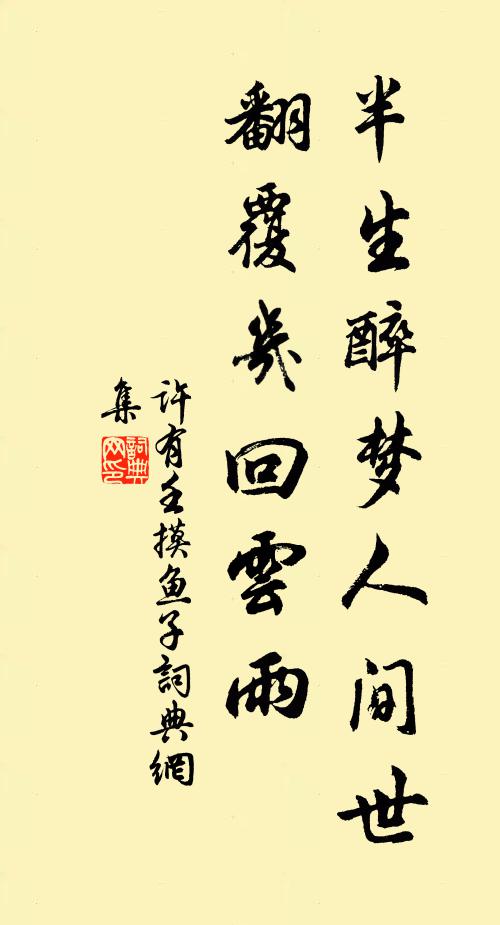 半生醉梦人间世
翻覆几回雲雨
许有壬摸鱼子詞典網
集
詞典网印